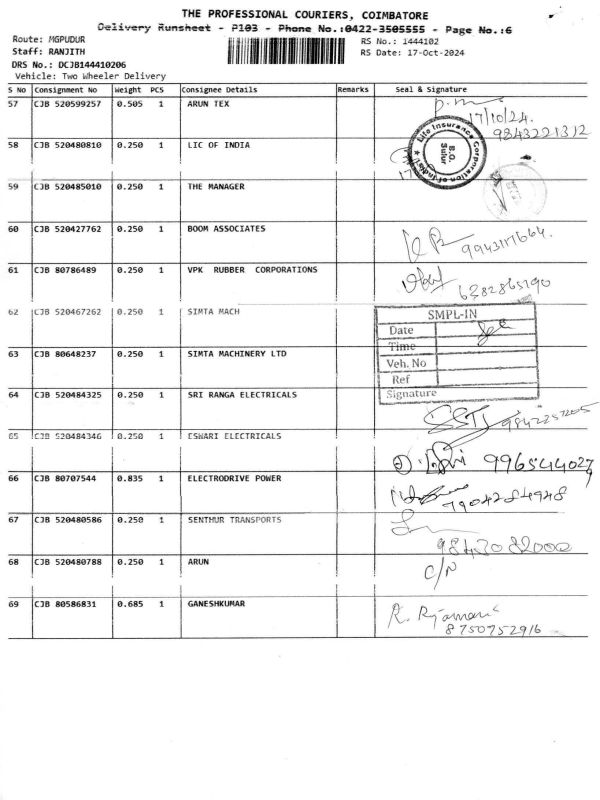 THE PROFESSIONAL COURIERS, COIMBATORE
Delivery Runsheet - P103 - Phone No.:0422-3505555 - Page No.:6
Route: MGPUDUR
RS No.: 1444102
Staff: RANJITH
RS Date: 17-Oct-2024
DRS No.: DCJB144410206
Vehicle: Two Wheeler Delivery
S No Consignment No Weight PCS Consignee Details Remarks Seal & Signature
57 CJB 520599257 0.505 1 ARUN TEX
17/10/24.
9843221312
58 CJB 520480810 0.250 1 LIC OF INDIA
Life Insurance Corporation of India
B.O.
Sulur
59 CJB 520485010 0.250 1 THE MANAGER
60 CJB 520427762 0.250 1 BOOM ASSOCIATES
61 CJB 80786489 0.250 1 VPK RUBBER CORPORATIONS
6382865190
62 CJB 520467262 0.250 1 SIMTA MACH
SMPL-IN
Date
Time
63 CJB 80648237 0.250 1 SIMTA MACHINERY LTD
Veh. No
Ref
64 CJB 520484325 0.250 1 SRI RANGA ELECTRICALS
Signature
SSTS 9842257205
65 CJB 520484346 0.250 1 ESWARI ELECTRICALS
996544027
66 CJB 80707544 0.835 1 ELECTRODRIVE POWER
7904284948
67 CJB 520480586 0.250 1 SENTHUR TRANSPORTS
9843082000
68 CJB 520480788 0.250 1 ARUN
C/N
69 CJB 80586831 0.685 1 GANESHKUMAR
8750752916